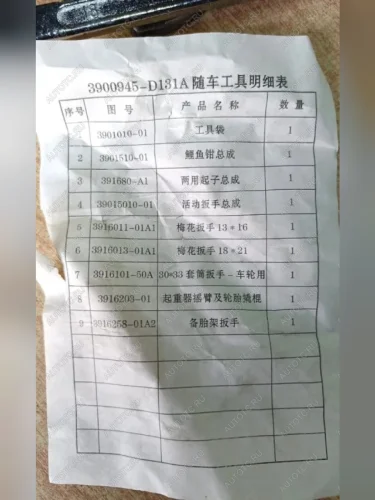 3900945-D131A随车工具明细表
序号 图号 产品名称 数量
3901010-01 工具袋 1
2 3901510-01 鲤鱼钳总成 1
3 391680-A1 两用起子总成 1
4 39015010-01 活动扳手总成 1
5 3916011-01A1 梅花扳手13*16 1
6 3916013-01A1 梅花扳手18*21 1
7 3916101-50A 30*33套筒扳手-车轮用 1
8 3916203-01 起重器摇臂及轮胎撬棍 1
9 3916258-01A2 备胎架扳手 1